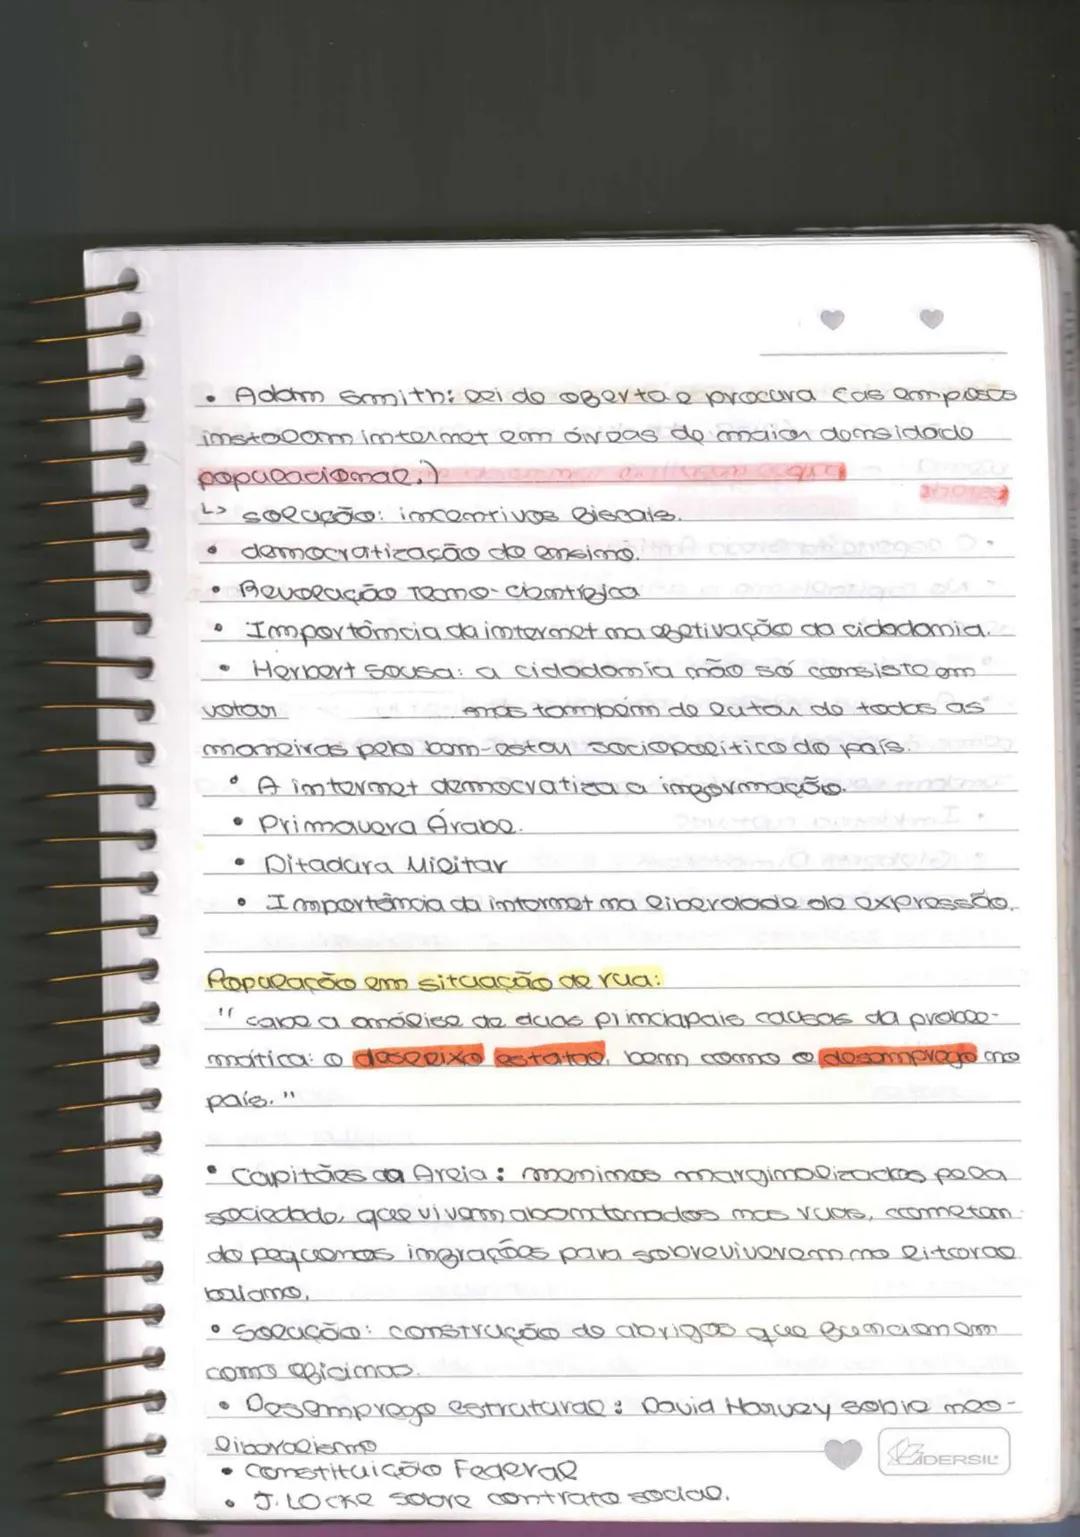 • Adam Smith: lei da oferta e procura (as empresas
instalam internet em áreas de maior densidade
populacional.)
↳ solução: incentivos fiscais.
• democratização do ensino.
• Revolução Tecno-científica
• Importância da internet na efetivação da cidadania.
• Herbert Sousa: a cidadania não só consiste em
votar mas também de lutar de todas as
maneiras pelo bem-estar sociopolítico do país.
• A internet democratiza a informação.
• Primavera Árabe.
• Ditadura Militar
• Importância da internet na liberdade de expressão.
População em situação de rua:
" cabe a análise de duas principais causas da proble-
mática: o desleixo estatal, bem como o desemprego no
país. "
• Capitães da Areia: meninos marginalizados pela
sociedade, que vivem abandonados nas ruas, cometen
do pequenas infrações para sobreviverem no litoral
baiano.
• Solução: construção de abrigos que funcionem
como oficinas.
• Desemprego estrutural: David Harvey sobre neo-
liberalismo
• Constituição Federal
• J. Locke sobre contrato social.